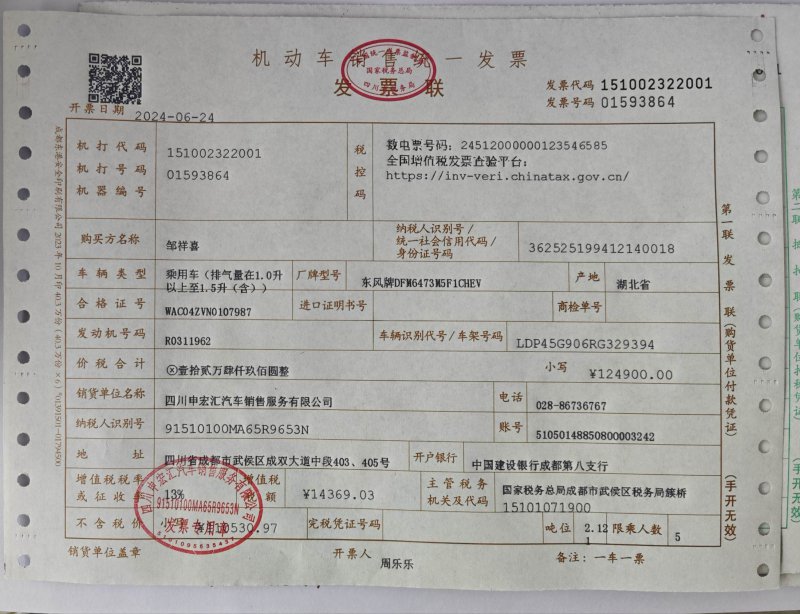 机动车销售统一发票
发票联
国家税务总局
发票代码 151002322001
发票号码 01593864
开票日期 2024-06-24
机打代码 151002322001
机打号码 01593864
机器编号
税控码
数电票号码：24512000000123546585
全国增值税发票查验平台：
https://inv-veri.chinatax.gov.cn/
购买方名称 邹祥喜
纳税人识别号/
统一社会信用代码/
身份证号码
362525199412140018
车辆类型 乘用车（排气量在1.0升
以上至1.5升（含））
厂牌型号 东风牌DFM6473M5F1CHEV
产地 湖北省
合格证号 WAC04ZVN0107987
进口证明书号
商检单号
发动机号码 R0311962
车辆识别代号/车架号码 LDP45G906RG329394
价税合计 ⓧ壹拾贰万肆仟玖佰圆整
小写 ¥124900.00
销货单位名称 四川申宏汇汽车销售服务有限公司
电话 028-86736767
纳税人识别号 91510100MA65R9653N
账号 51050148850800003242
地址 四川省成都市武侯区成双大道中段403、405号
开户银行 中国建设银行成都第八支行
增值税税率
或征收率
13%
增值税
额
¥14369.03
主管税务
机关及代码
国家税务总局成都市武侯区税务局簇桥
15101071900
不含税价 小写 ¥110530.97
完税凭证号码
吨位 2.12
1
限乘人数 5
四川申宏汇汽车销售服务有限公司
91510100MA65R9653N
发票专用章
销货单位盖章
开票人 周乐乐
备注：一车一票
第一联 发票联（购货单位付款凭证）
（手开无效）